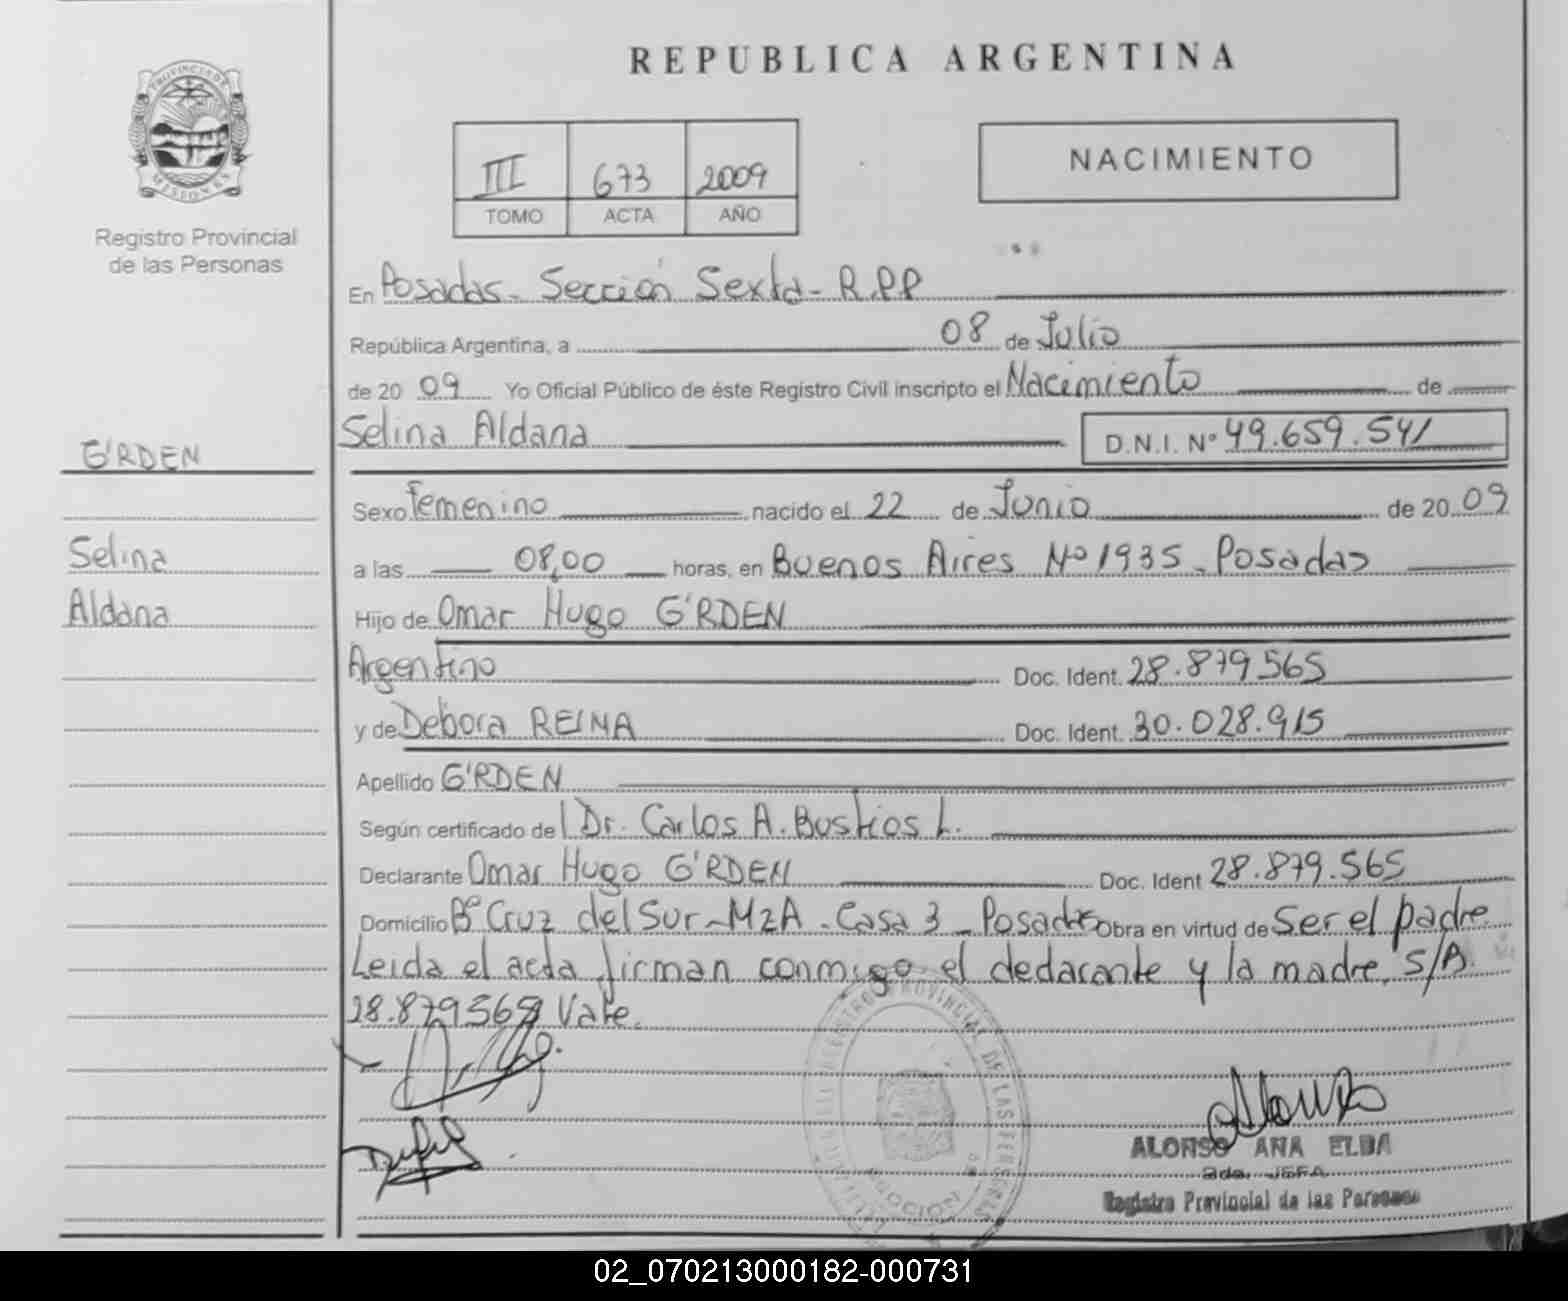 REPUBLICA ARGENTINA
PROVINCIA DE
MISIONES
Registro Provincial
de las Personas
III 673 2009
TOMO ACTA AÑO
NACIMIENTO
En Posadas - Sección Sexta - R.P.P
República Argentina, a 08 de Julio
de 20 09 Yo Oficial Público de éste Registro Civil inscripto el Nacimiento de
Selina Aldana D.N.I. Nº 49.659.541
G'RDEN
Sexo Femenino nacido el 22 de Junio de 20 09
Selina
a las 08,00 horas, en Buenos Aires Nº 1935 - Posadas
Aldana
Hijo de Omar Hugo G'RDEN
Argentino Doc. Ident. 28.879.565
y de Debora REINA Doc. Ident. 30.028.915
Apellido G'RDEN
Según certificado del Dr. Carlos A. Bustios L.
Declarante Omar Hugo G'RDEN Doc. Ident 28.879.565
Domicilio Bº Cruz del Sur - MzA - Casa 3 - Posadas Obra en virtud de Ser el padre
Leida el acta firman conmigo el declarante y la madre. S/A
28.879565 Vale.
REGISTRO PROVINCIAL DE LAS PERSONAS
ALONSO ANA ELBA
2da. JEFA
Registro Provincial de las Personas
02_070213000182-000731